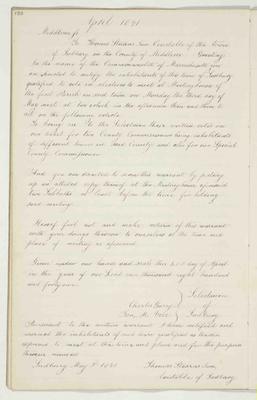 April 1841
Middlesex ss
To Thomas Stearns Junr Constable of the Town
of Sudbury in the County of Middlesex Greeting
In the name of the Commonwealth of Massachusetts you
are directed to notify the inhabitants of the town of Sudbury
qualified to vote in elections to meet at Meetinghouse of
the first Parish in said town on Monday the third day of
May next at two oclock in the afternoon then and there to
act on the following articles
To bring in to the Selectmen their written votes on
one list for two County Commissioners being inhabitants
of different towns in said County and also for one Special
County Commissioner
And you are directed to serve this warrant by posting
up an attested copy thereof at the Meetinghouse aforesaid
two Sabbaths at least before the time for holding
said meeting
Hereof fail not and make return of this warrant
with your doings thereon to ourselves at the time and
place of meeting as aforesaid
Given under our hands and seals this day of April
in the year of our Lord one thousand eight hundred
and forty one
Selectmen
Charles
of
Sudbury
Pursuant to the within warrant I have notified and
warned the inhabitants of said town qualified as therein
expressed to meet at the time and place and for the purpose
therein named
Sudbury May 3d 1841 Thomas Stearns Junr
Constable of Sudbury